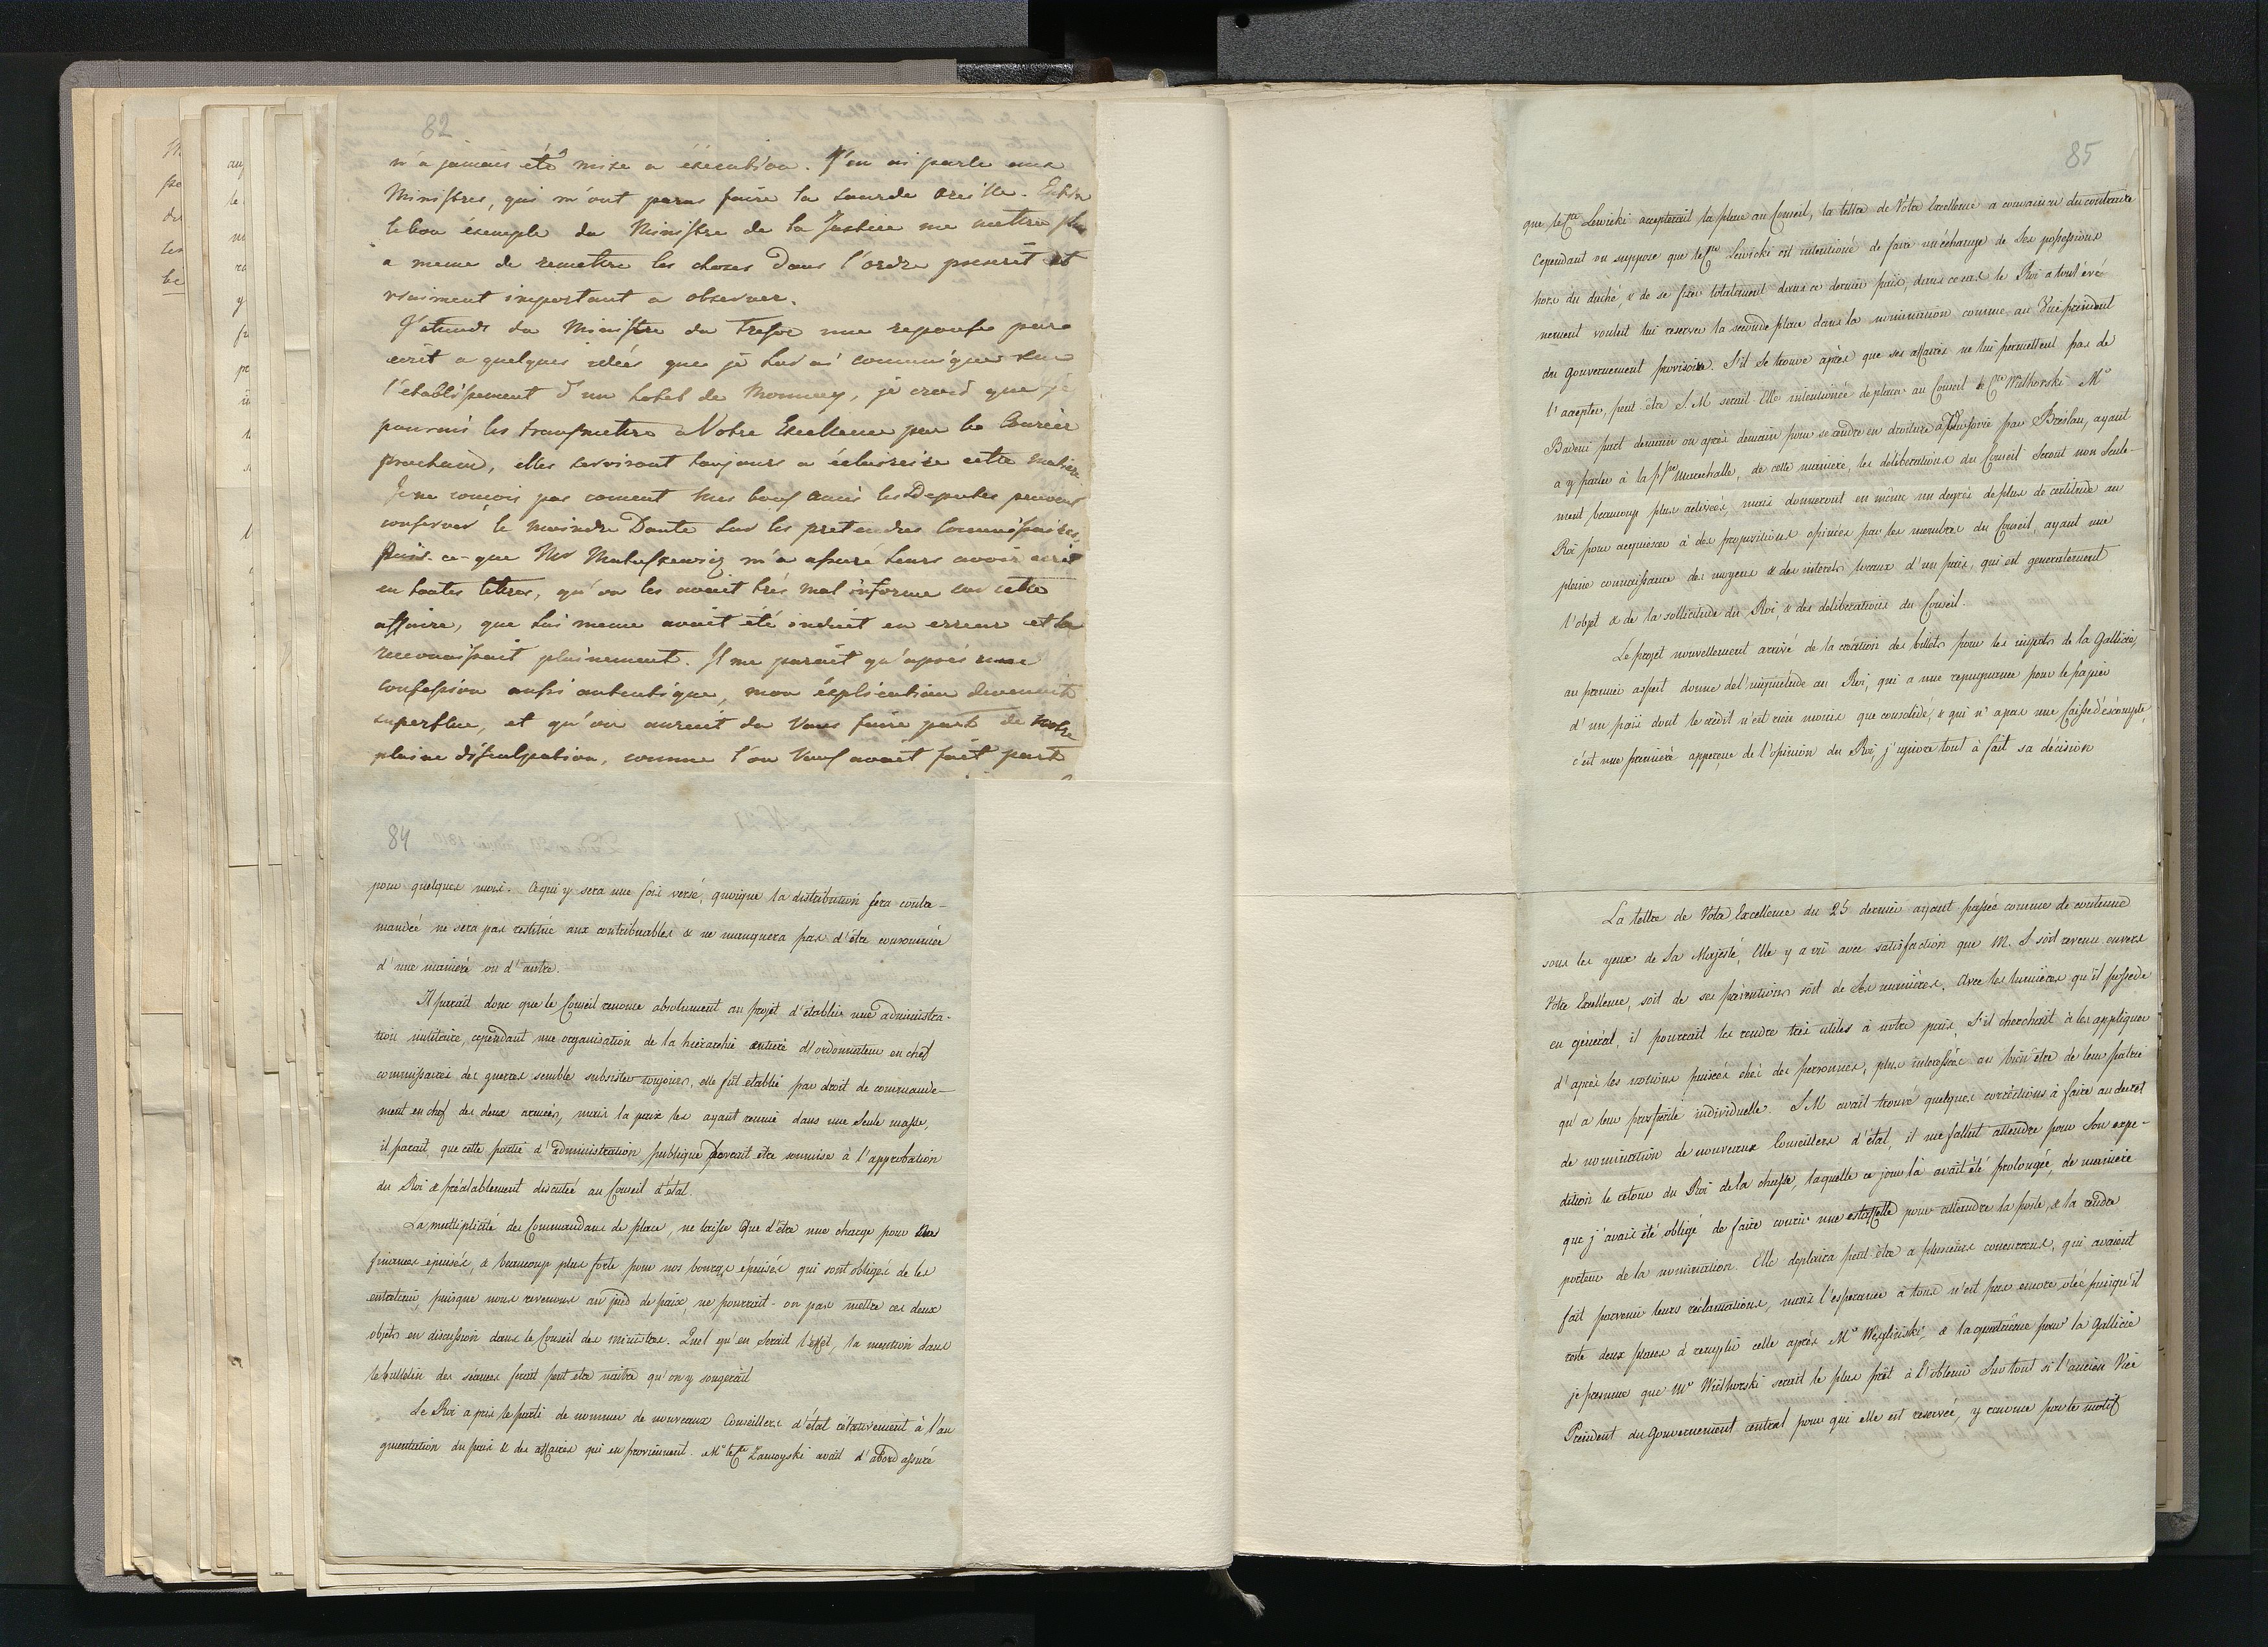 82
n'a jamais été mise a éxecution. J'en ai parle aux
Ministres, qui m'ont parus faire la sourde oreille. Enfin
le bon éxemple du Ministre de la Justice me mettra plus
a meme de remettre les choses dans l'ordre prescrit et
vraiment important a observer.
J'attends du Ministre du Tresor une reponse par
ecrit a quelques idées que je lui ai communiquer sur
l'etablissement d'un hotel de Monnay, je croid que je
pourrais les transmettre a Votre Excellence par le Courier
prochain, elles serviront toujours a éclaircire cette matiere
Je ne concois pas coment tres bons amis les Deputés peuvent
conserver le moindre Doute sur les pretendus Commissaires,
puis-ce-que Mr Matuszewicz m'a assuré leurs avoir ecrit
en toutes lettres, qu'on les avait très mal informé sur cette
affaire, que lui meme avait été induit en erreur et le
reconnaissait plainement. Il me parait qu'après une
confession aussi autentique, mon éxplication devenait
superflue, et qu'on aurait du Vous faire part de notre
plaine disculpation, comme l'on Vous avait fait part
84
pour quelques mois. Ce qui y sera une fois versé, quoique la distribution sera contre-
mandée ne sera pas restitué aux contribuables & ne manquera pas d'être consommée
d'une manière ou d'autre.
Il parait donc que le Conseil renonce absolument au projet d'établir une administra-
tion militaire, cependant une organisation de la hierarchie entiere d'ordonnateur en chef
commissaires des guerres semble subsister toujours, elle fût etablie par droit de commande-
ment en chef des deux armées, mais la paix les ayant reunie dans une seule masse,
il parait que cette partie d'administration publique devrait être soumise à l'approbation
du Roi & préalablement discutée au Conseil d'état.
La multiplicité des Commandans de place, ne laisse que d'être une charge pour des
finances epuisés, & beaucoup plus forte pour nos bourgs épuisés qui sont obligés de les
entretenir, puisque nous revenons au pied de paix, ne pourrait-on pas mettre ces deux
objets en discussion dans le Conseil des ministres. Quel qu'en serait l'effet, la mention dans
le bulletin des séances ferait peut etre naitre qu'on y songerait
Le Roi a pris le parti de nommer de nouveaux Conseillers d'état rélativement à l'au
gmentation du pais & des affaires qui en proviennent. Mr le Cte Zamoyski avait d'abord assuré
85
que le Cte Sewicki accepterait la place au Conseil, la lettre de Votre Excellence a convaincu du contraire
Cependant on suppose que le Cte Sewicki est intentioné de faire un échange de ses possessions
hors du duché & de se fixer totalement dans ce dernier païs, dans ce cas le Roi a tout évé
nement voulut lui reserver la seconde place dans la nomination comme au Vice president
du gouvernement provisoire. S'il se trouve après que ses affaires ne lui permettent pas de
l'accepter, peut-être S.M serait-Elle intentionée de placer au Conseil le Cte Wielhorski Mr
Badeni part demain ou après demain pour se rendre en droiture à Varsovie par Breslau, ayant
a y parler à la Pse Marechalle, de cette manière, les déliberations du Conseil seront non seule-
ment beaucoup plus activées, mais donneront en même un degré de plus de certitude au
Roi pour acquiescer à des propositions opinées par les membres du Conseil, ayant une
pleine connaissance des moyens & des interets locaux d'un païs, qui est generalement
l'objet & de la sollicitude du Roi, & des deliberations du Conseil.
Le projet nouvellement arrivé de la création des billets pour les impots de la Gallicie,
au premier aspect donne de l'inquietude au Roi, qui a une repugnance pour le papier
d'un païs dont le credit n'est rien moins que consolidé, & qui n'a pas une Caisse d'éscompte,
c'est une premiere apperçue de l'opinion du Roi, j'ignore tout à fait sa décision
La lettre de Votre Excellence du 25 dernier ayant passée comme de coutume
sous les yeux de Sa Majesté, Elle y a vû avec satisfaction que M. S soit revenu envers
Votre Excellence, soit de ses préventions soit de ses manières. Avec les lumières qu'il possede
en géneral, il pourrait les rendre très utiles à notre païs, s'il cherchait à les appliquer
d'après les notions puisées chez des personnes, plus interessées au bien être de leur patrie
qu'a leur prosperité individuelle. S.M avait trouvé quelques corrections à faire au decret
de nomination de nouveaux Conseillers d'état, il me fallut attendre pour son expe-
dition le retour du Roi de la chasse, laquelle ce jour là avait été prolongée, de maniere
que j'avais été obligé de faire courir une estaffette pour atteindre la poste, & la rendre
porteur de la nomination. Elle deplaira peut-être a plusieurs concurrens, qui avaient
fait parvenir leurs réclamations, mais l'esperance à tous n'est pas encore otée puisqu'il
reste deux places à remplir celle après Mr Węgliński, & la quatrieme pour la Gallicie
je presume que Mr Wielhorski serait le plus prêt à l'obtenir sur tout si l'ancien Vice
President du Gouvernement central pour qui elle est reservée, y renonce par le motif